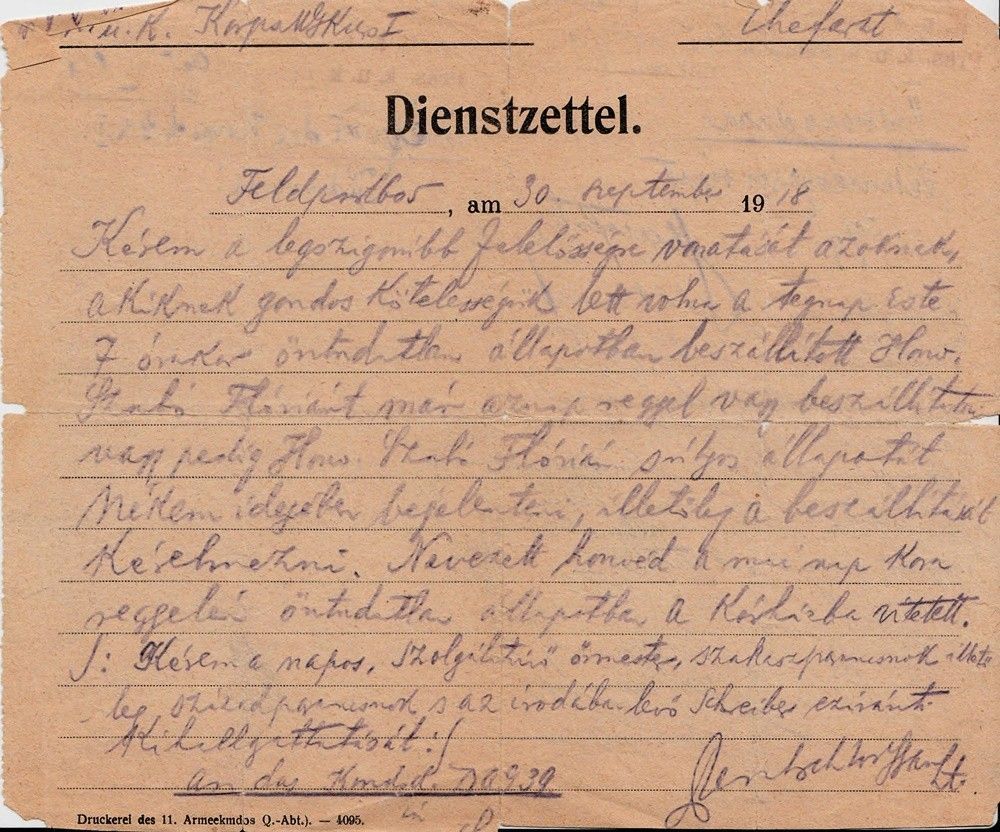 u. K. Chefarzt
Dienstzettel.
Feldpostbos, am 30. szeptember 1918
Kérem a legszigorúbb felelősségre vonatását azoknak,
akiknek gondos kötelességük lett volna a tegnap este
7 órakor öntudatlan állapotban beszállított Honv.
Szabó Flóriánt már aznap reggel vagy beszállítatni
vagy pedig Honv. Szabó Flórián súlyos állapotát
Nékem idejében bejelenteni, illetőleg a beszállítását
kérelmezni. Nevezett honvéd a mai nap kora
reggelén öntudatlan állapotban a Kórházba vitetett.
/: Kérem a napos, szolgálattevő őrmester, szakaszparancsnok illető
leg századparancsnok s az irodában levő Schreiber eziránti
kihallgattatását :/
an das Kmdo d.
Druckerei des 11. Armeekmdos Q.-Abt.). — 4095.